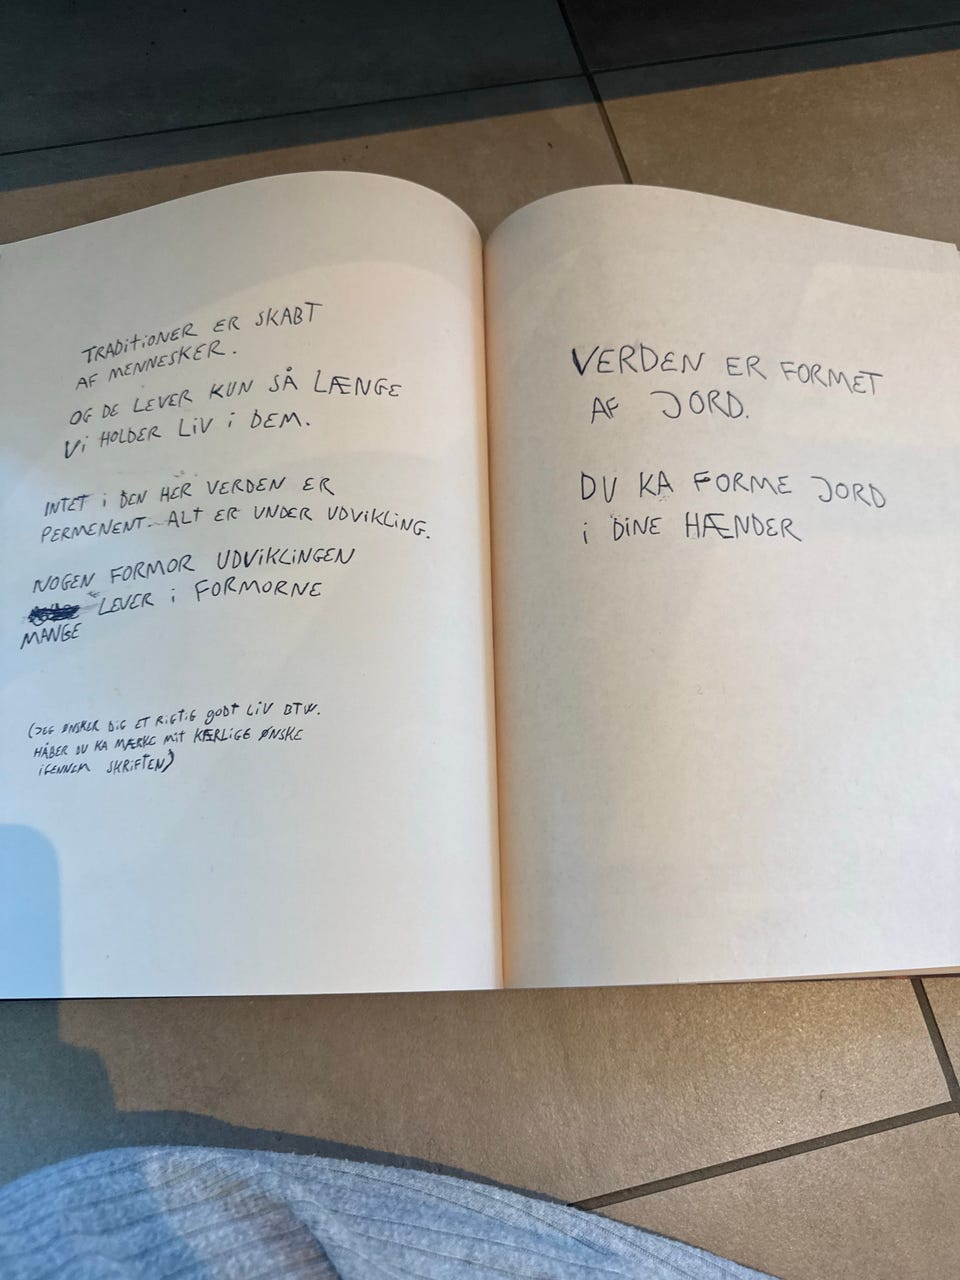 TRADITIONER ER SKABT
AF MENNESKER.
OG DE LEVER KUN SÅ LÆNGE
Vi HOLDER LIV i DEM.
INTET i DEN HER VERDEN ER
PERMENENT. ALT ER UNDER UDVIKLING.
NOGEN FORMOR UDVIKLINGEN
LEVER i FORMORNE
MANGE
(JEG ØNSKER DIG ET RIGTIG GODT LIV BTW.
HÅBER DU KA MÆRKE MIT KÆRLIGE ØNSKE
IGENNEM SKRIFTEN)
VERDEN ER FORMET
AF JORD.
DU KA FORME JORD
i DINE HÆNDER